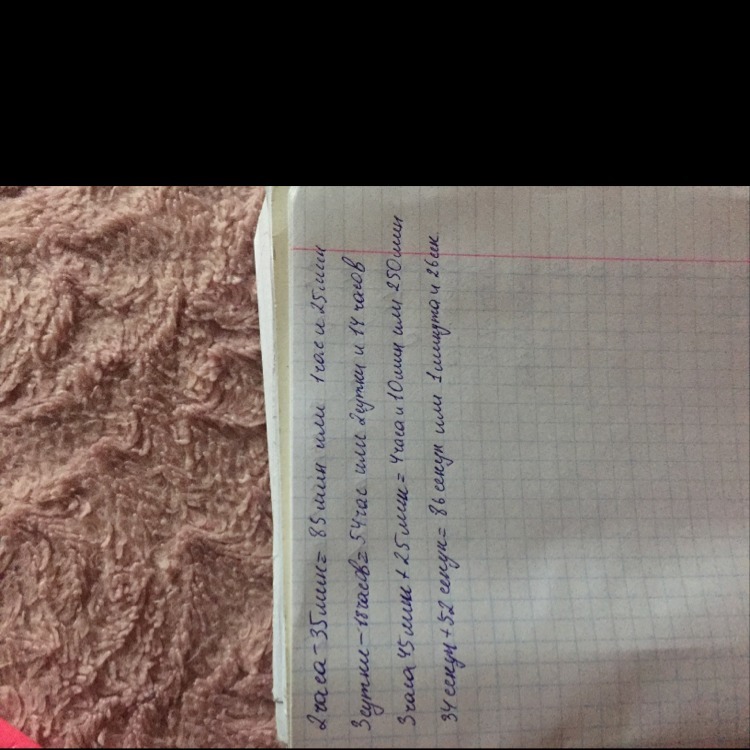 2 часа - 35 мин = 85 мин или 1 час и 25 мин
3 сутки - 18 часов = 54 час или 2 сутки и 14 часов
3 часа 45 мин + 25 мин = 4 часа и 10 мин или 250 мин
34 секун + 52 секун = 86 секун или 1 минута и 26 сек.